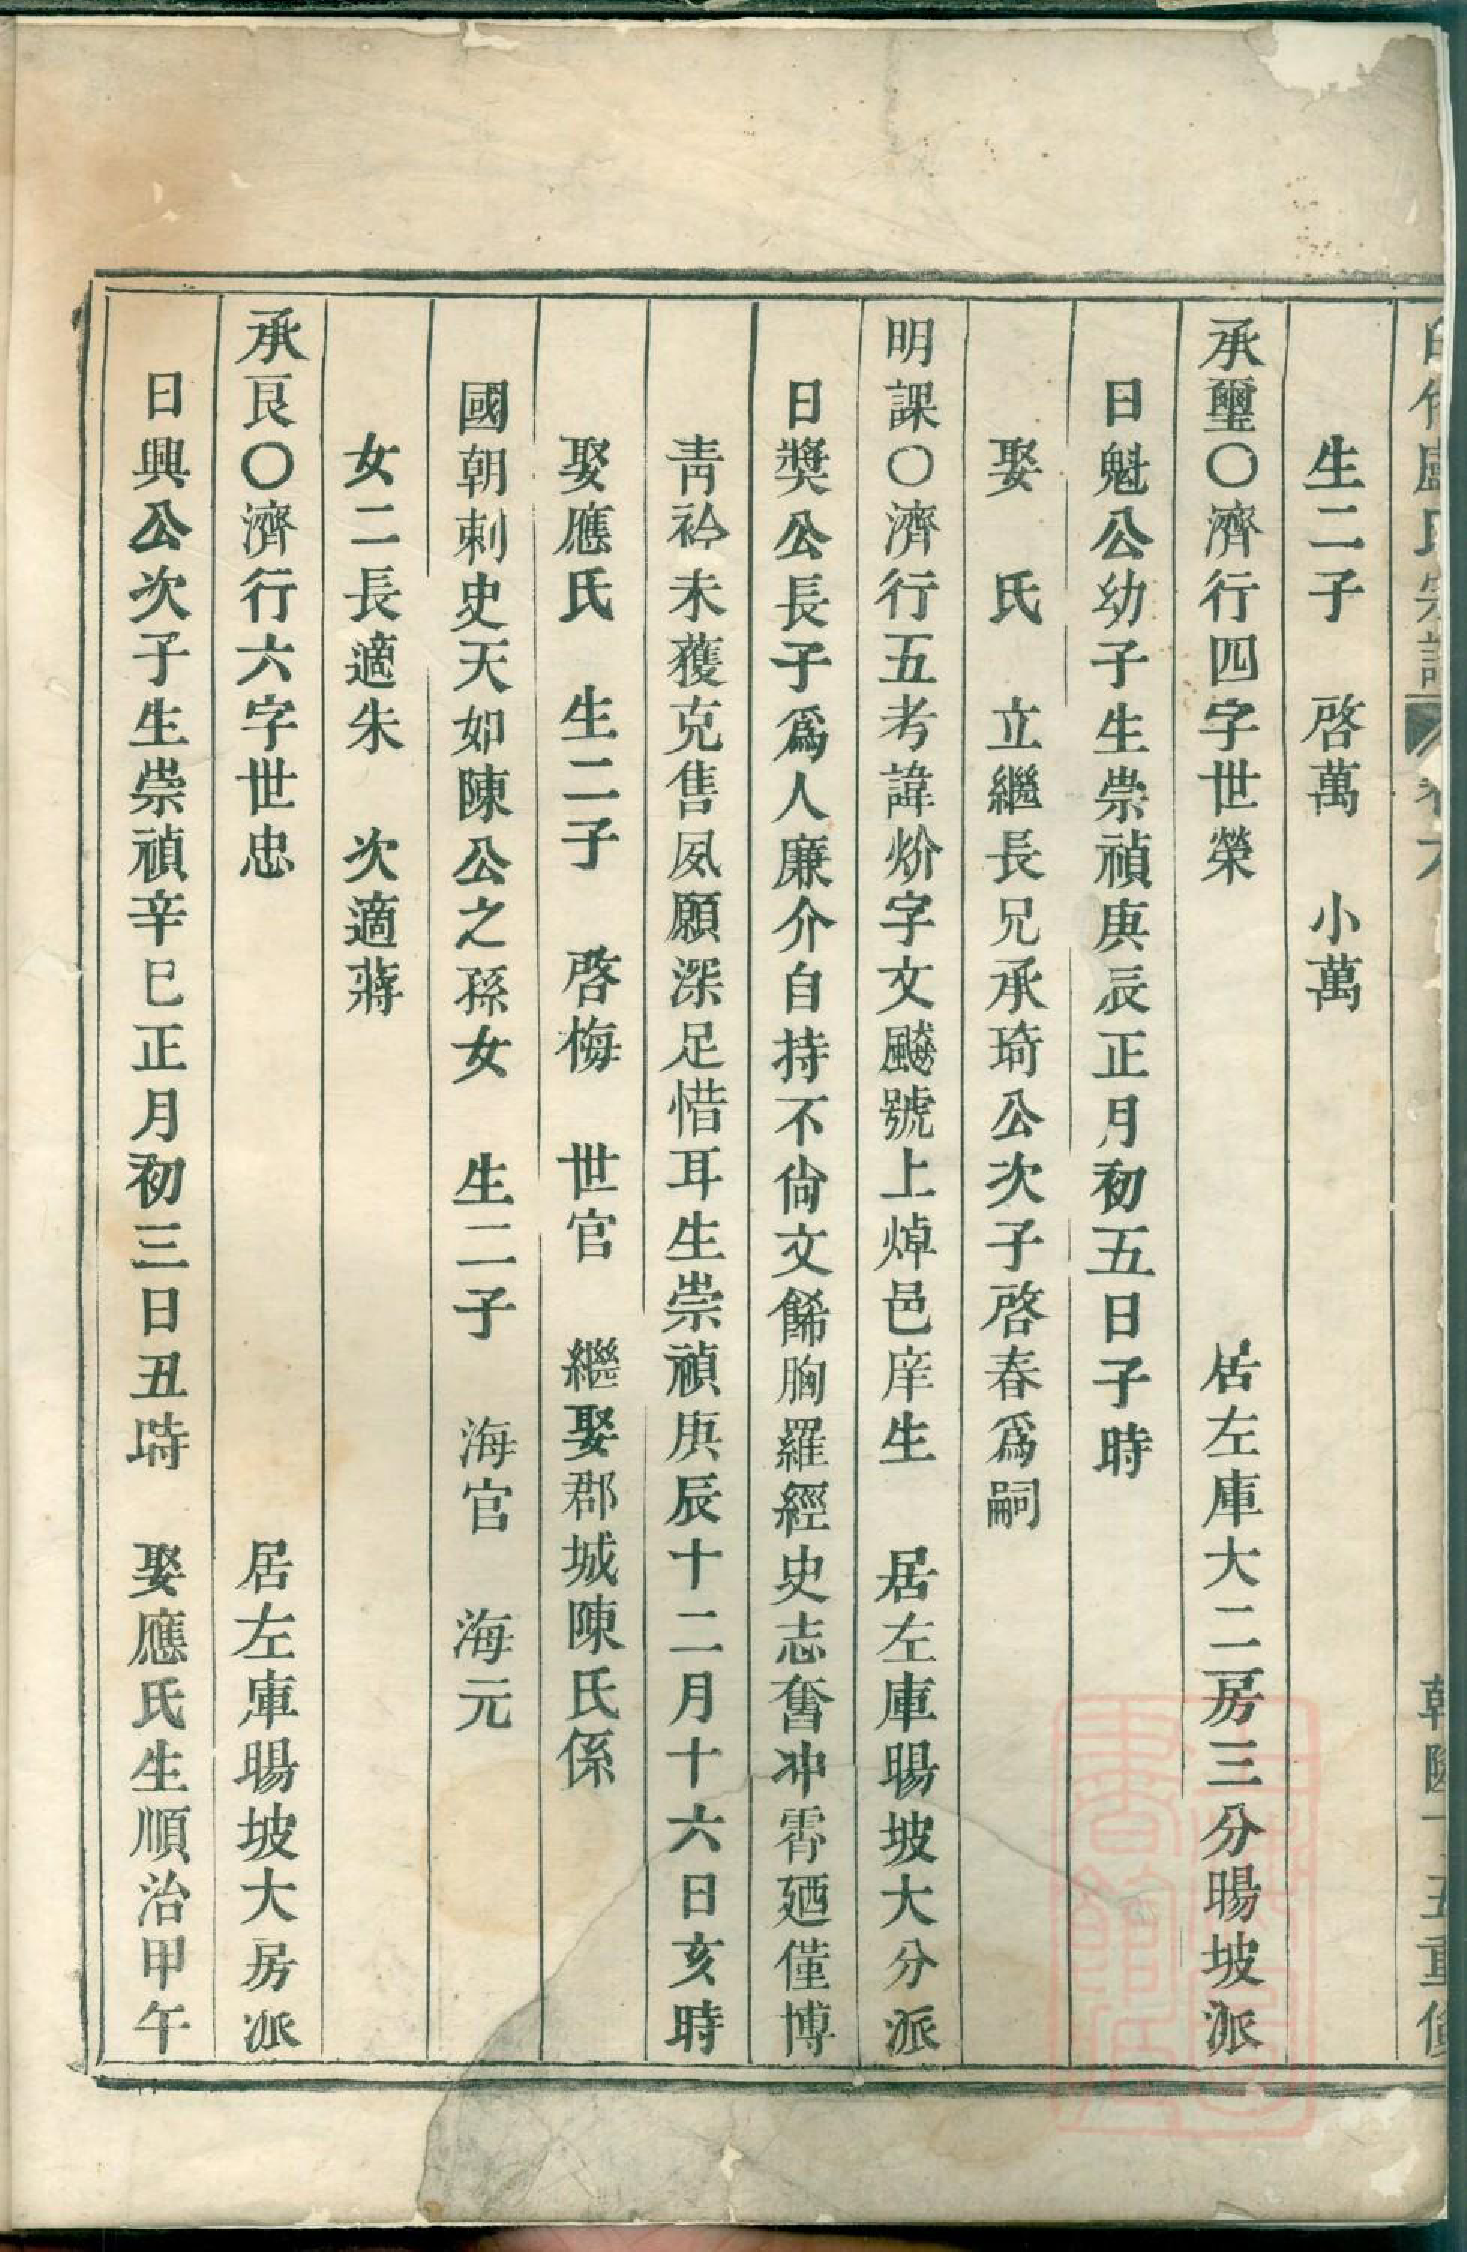 盧氏宗譜 卷六
生二子 啓萬 小萬
承璽〇濟行四字世榮 居左庫大二房三分暘坡派
日魁公幼子生崇禎庚辰正月初五日子時
娶 氏 立繼長兄承琦公次子啓春爲嗣
明課〇濟行五考諱炌字文飈號上焯邑庠生 居左庫暘坡大分派
日奬公長子爲人廉介自持不尙文餙胸羅經史志奮冲霄廼僅博
靑衿未獲克售夙願深足惜耳生崇禎庚辰十二月十六日亥時
娶應氏 生二子 啓梅 世官 繼娶郡城陳氏係
國朝刺史天如陳公之孫女 生二子 海官 海元
女二長適朱 次適蔣
承良〇濟行六字世忠 居左庫暘坡大房派
日興公次子生崇禎辛巳正月初三日丑時 娶應氏生順治甲午